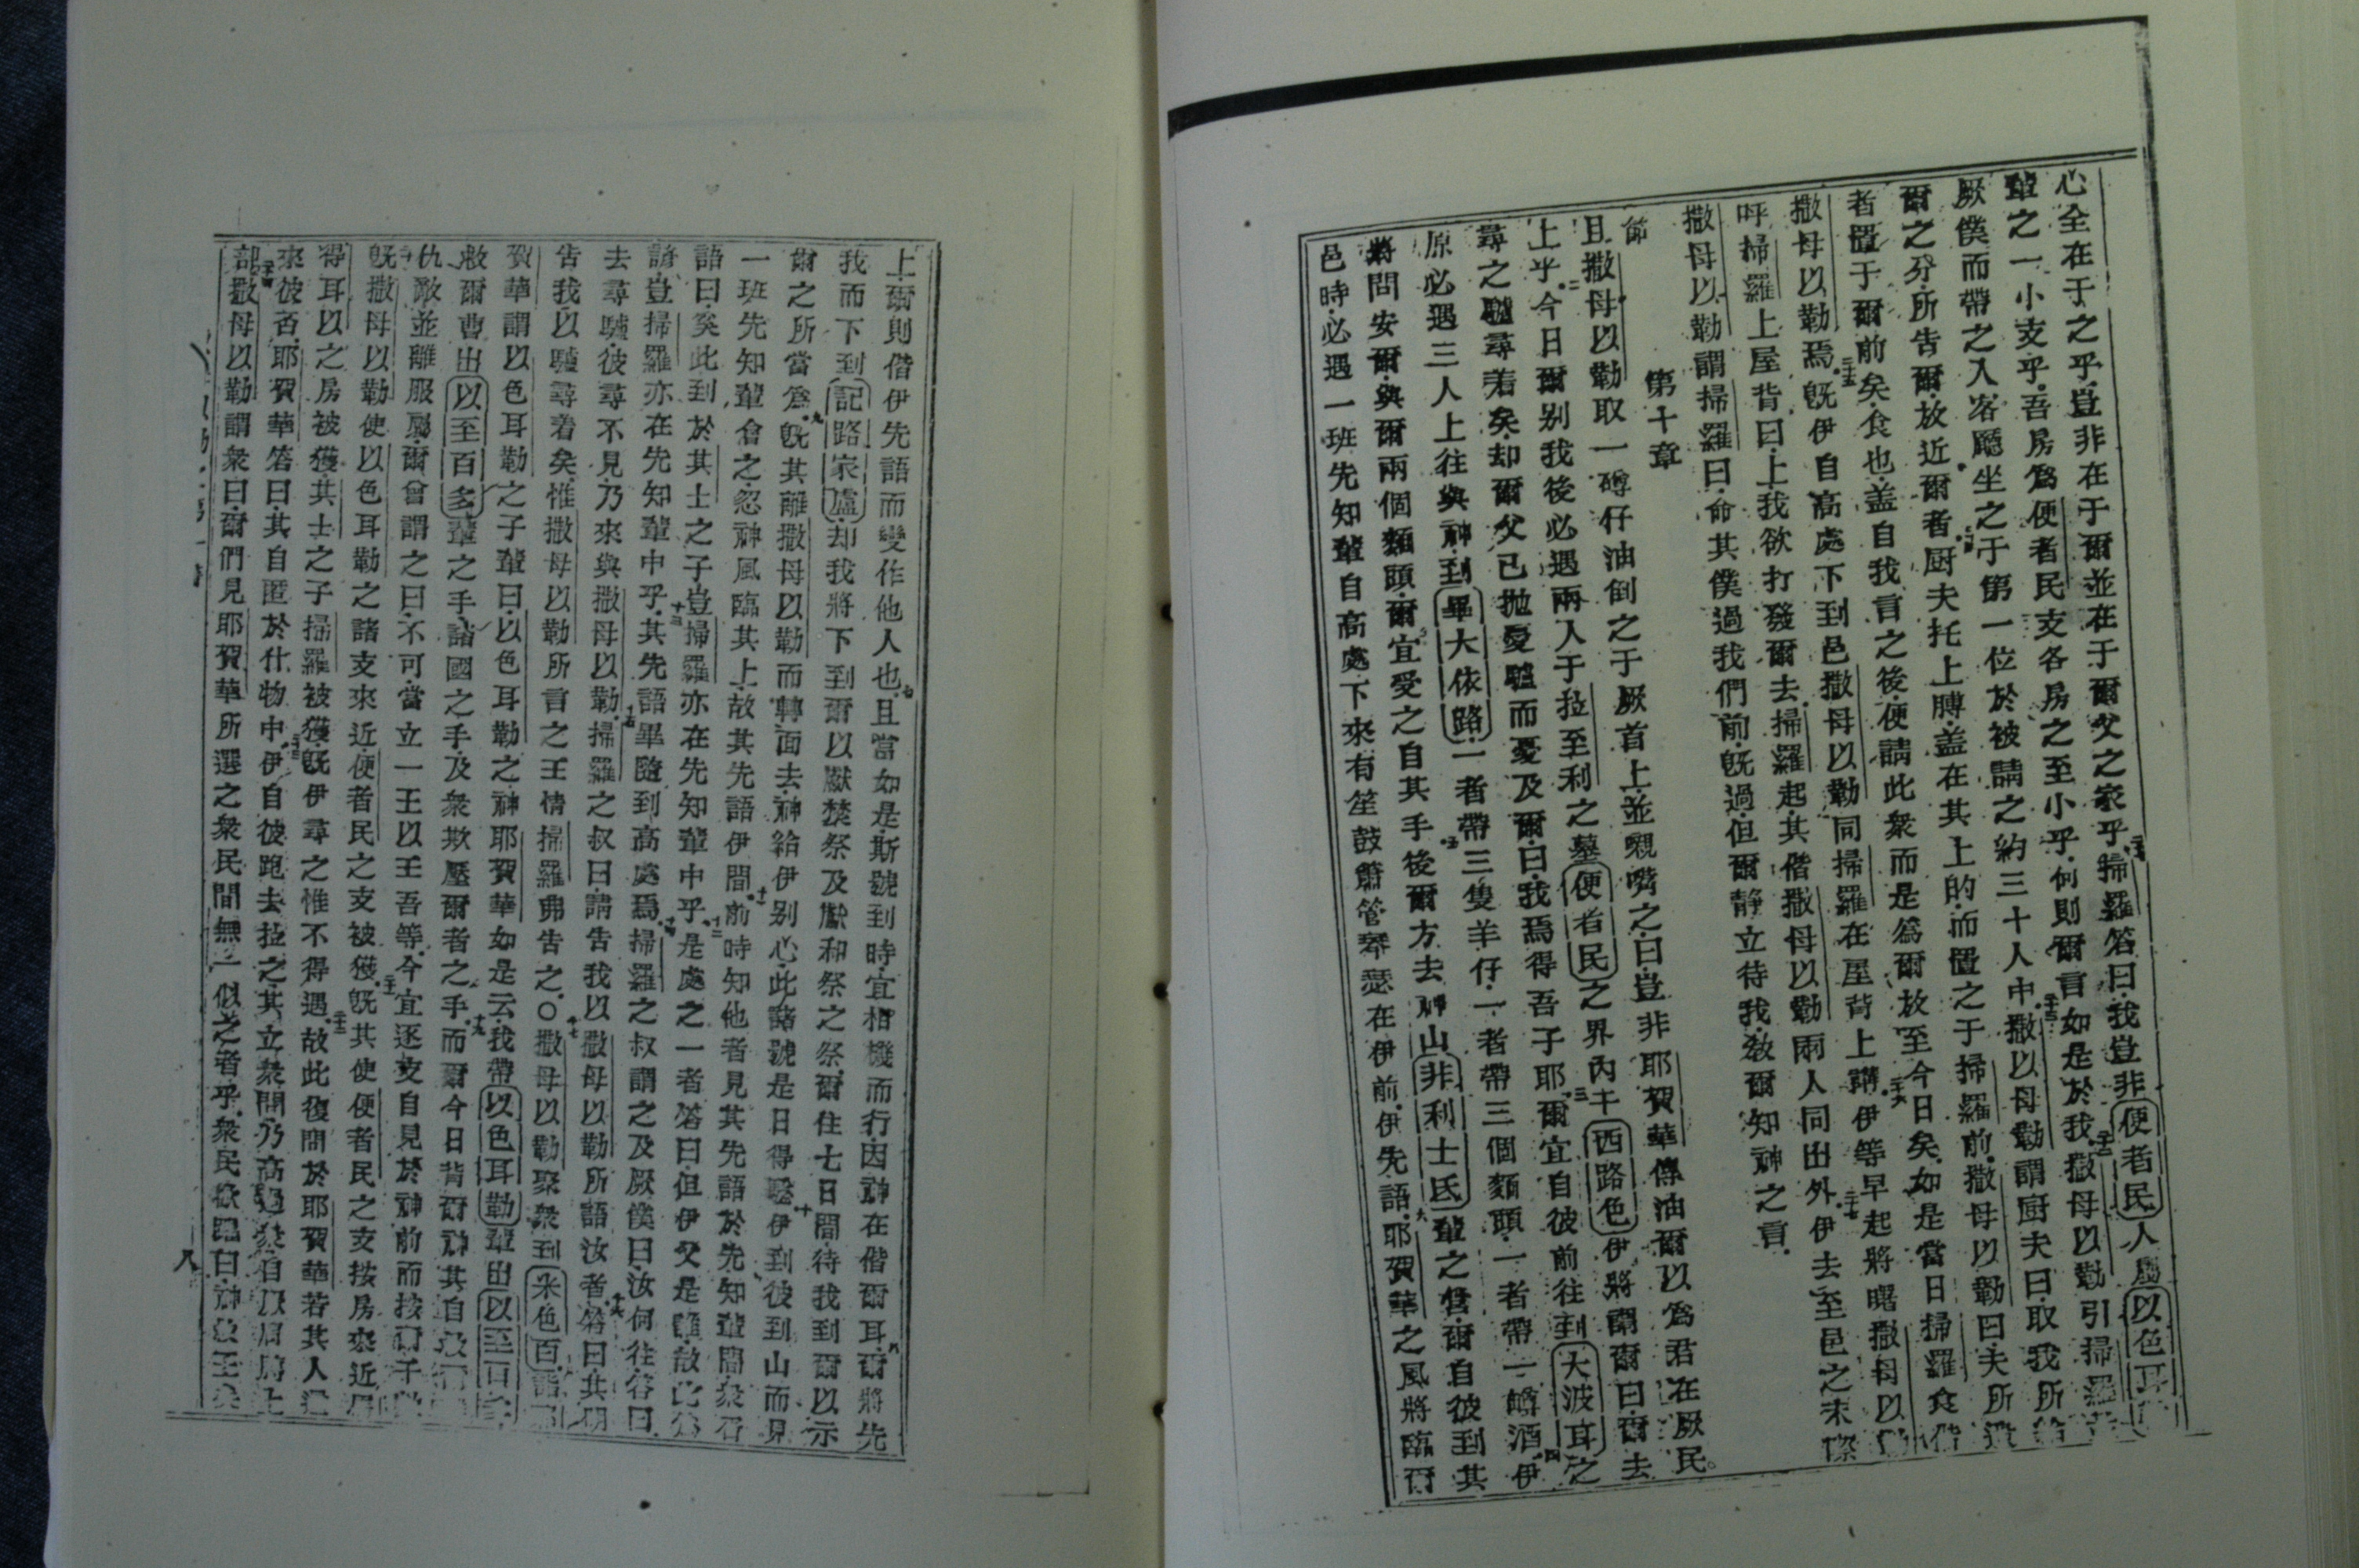 心全在于之乎豈非在于爾並在于爾父之家乎二十一掃羅答曰我豈非便者民人屬以色耳
輩之一小支乎吾房爲便者民支各房之至小乎何則爾言如是於我二十二撒母以勒引掃羅
厥僕而帶之入客廳坐之于第一位於被請之約三十人中二十三撒以母勒謂厨夫曰取我所給
爾之分所告爾放近爾者二十四厨夫托上膊盖在其上的而置之于掃羅前撒母以勒曰夫所
者置于爾前矣食也盖自我言之後便請此衆而是爲爾放至今日矣如是當日掃羅食偕
撒母以勒焉二十五旣伊自高處下到邑撒母以勒同掃羅在屋背上講二十六伊等早起將曙撒母以
呼掃羅上屋背曰上我欲打發爾去掃羅起其偕撒母以勒兩人同出外二十七伊去至邑之末
撒母以勒謂掃羅曰命其僕過我們前旣過但爾靜立待我敎爾知神之言
第十章
節
且撒母以勒取一罇仔油倒之于厥首上並嘴之曰豈非耶賀華傳油爾以爲君在厥民
上乎二今日爾別我後必遇兩人于拉至利之墓便者民之界內于西路色伊將謂爾曰爾去
尋之驢尋着矣却爾父已抛憂驢而憂及爾曰我焉得吾子耶三爾宜自彼前往到大波耳之
原必遇三人上往與神到畢大依路一者帶三隻羊仔一者帶三個麵頭一者帶一罇酒四伊
將問安爾與爾兩個麵頭爾宜受之自其手五後爾方去神山非利士氐輩之營爾自彼到其
邑時必遇一班先知輩自高處下來有笙鼓簫管琴瑟在伊前伊先語六耶賀華之風將臨爾
上爾則偕伊先語而變作他人也七且當如是斯號到時宜相機而行因神在偕爾耳八爾將先
我而下到記路家盧却我將下到爾以獻焚祭及獻和祭之祭爾住七日間待我到爾以示
爾之所當爲九旣其離撒母以勒而轉面去神給伊別心此諸號是日得驗十伊到彼到山而見
一班先知輩會之忽神風臨其上故其先語伊間十一前時知他者見其先語於先知輩間衆
語曰矣此到於其士之子豈掃羅亦在先知輩中乎十二是處之一者答曰但伊父是誰故此爲
諺豈掃羅亦在先知輩中乎十三其先語畢隨到高處焉十四掃羅之叔謂之及厥僕曰汝何往答曰
去尋驢彼尋不見乃來與撒母以勒十五掃羅之叔曰請告我以撒母以勒所語汝者十六答曰其明
告我以驢尋着矣惟撒母以勒所言之王情掃羅弗告之○十七撒母以勒聚衆到米色百詣耶
賀華謂以色耳勒之子輩曰以色耳勒之神耶賀華如是云我帶以色耳勒輩出以至百多
救爾曹出以至百多輩之手諸國之手及衆欺壓爾者之手十九而爾今日背爾神其自
仇敵並離服屬爾曾謂之曰不可當立一王以王吾等今宜逐支自見於神前而按
旣撒母以勒使以色耳勒之諸支來近便者民之支被獲二十一旣其使便者民之支按房來近
得耳以之房被獲其士之子掃羅被獲旣伊尋之惟不得遇二十二故此復問於耶賀華若其人
來彼否耶賀華答曰其自匿於什物中二十三伊自彼跑去拉之其立衆間乃高過衆自
部二十四撒母以勒謂衆曰爾們見耶賀華所選之衆民間無一似之者乎衆民
八